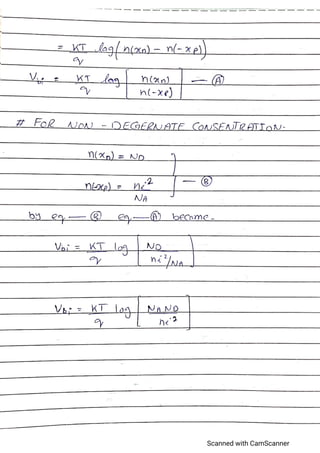 = KT/q log( n(xn) - n(-xp))
Vbi = KT/q log [ n(xn) / n(-xp) ] — (A)
# FOR NON - DEGERNATE CONSENTRATION.
n(xn) = ND
n(-xp) = ni² / NA ] — (B)
by eq — (B) eq — (A) become.
Vbi = KT/q log [ ND / ni²/NA ]
Vbi = KT/q log [ NA ND / ni² ]
Scanned with CamScanner